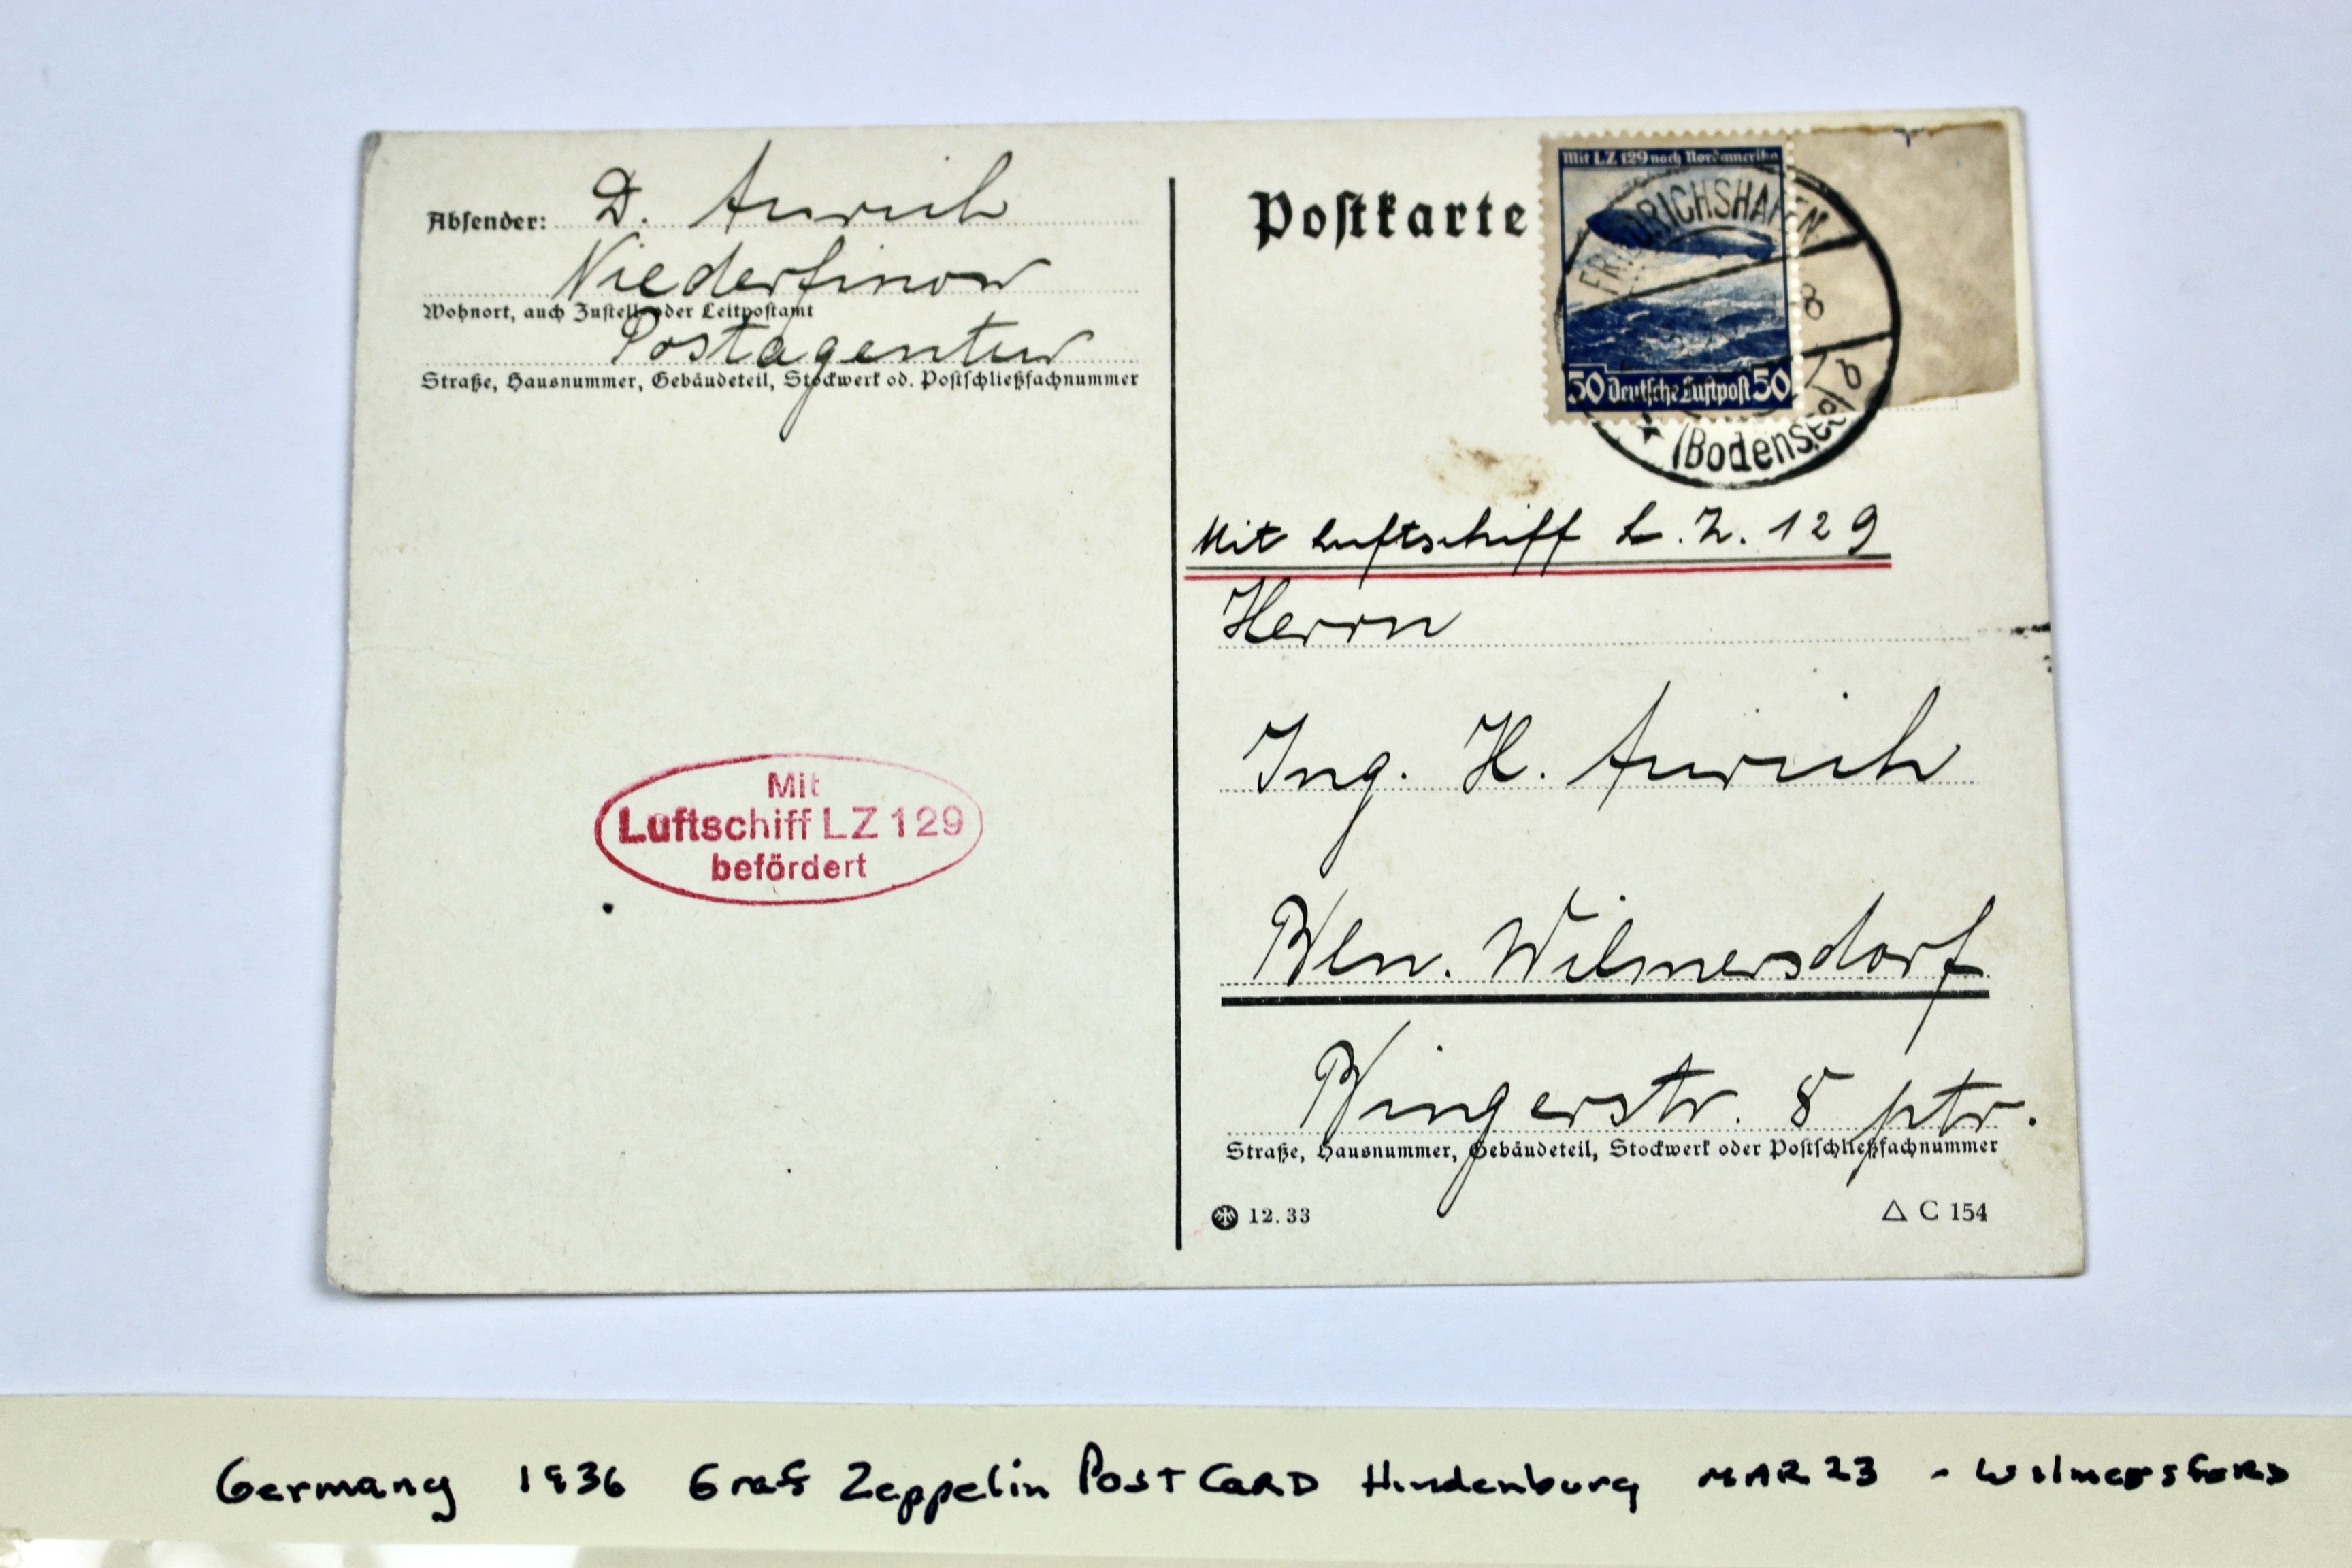 Absender: D. Aurich
Niederfinow
Wohnort, auch Zustell- oder Leitpostamt
Postagentur
Straße, Hausnummer, Gebäudeteil, Stockwerk od. Postschließfachnummer
Mit
Luftschiff LZ 129
befördert
Postkarte
Mit LZ 129 nach Nordamerika
50 Deutsche Luftpost 50
FRIEDRICHSHAFEN
8
b
(Bodensee)
Mit Luftschiff L.Z. 129
Herrn
Ing. H. Aurich
Bln. Wilmersdorf
Bingerstr. 8 ptr.
Straße, Hausnummer, Gebäudeteil, Stockwerk oder Postschließfachnummer
12.33
△ C 154
Germany 1936 Graf Zeppelin Post Card Hindenburg MAR 23 - Wilmersford